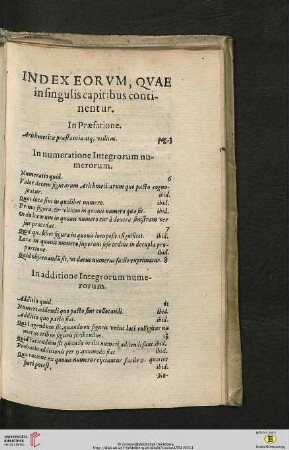 INDEX EORVM, QVAE
in singulis capitibus conti-
nentur.
In Præfatione.
Arithmeticæ præstantia atq; vtilitas.
In numeratione Integrorum nu-
merorum.
Numeratio quid. 6
Valor decem figurarum Arithmeticarum quo pacto cogno-
scatur. ibid.
Quot loca sint in quolibet numero. ibid.
Prima figura in quouis numero quæ sit. ibid.
Ordo locorum in quouis numero cur à dextra sinistram ver-
sus procedat. 7
Quid quælibet figura in quouis loco posita significet. ibid.
Loca in quouis numero superant sese ordine in decupla pro-
portione. ibid.
Quid obseruandum sit, vt datus numerus facile exprimatur. 8
In additione Integrorum nume-
rorum.
Additio quid.
Numeri addendi quo pacto sint collocandi. ibid.
Additio quo pacto fiat. ibid.
Quid agendum sit, quando ex figuris vnius loci colligitur nu-
merus tribus figuris scribendus.
Quid faciendum sit quando multi numeri addendi sunt. ibid.
Probatio additionis per 9 quomodo fiat. ibid.
Qua ratione ex quouis numero reijciantur facile 9. quoties
fieri potest. ibid.